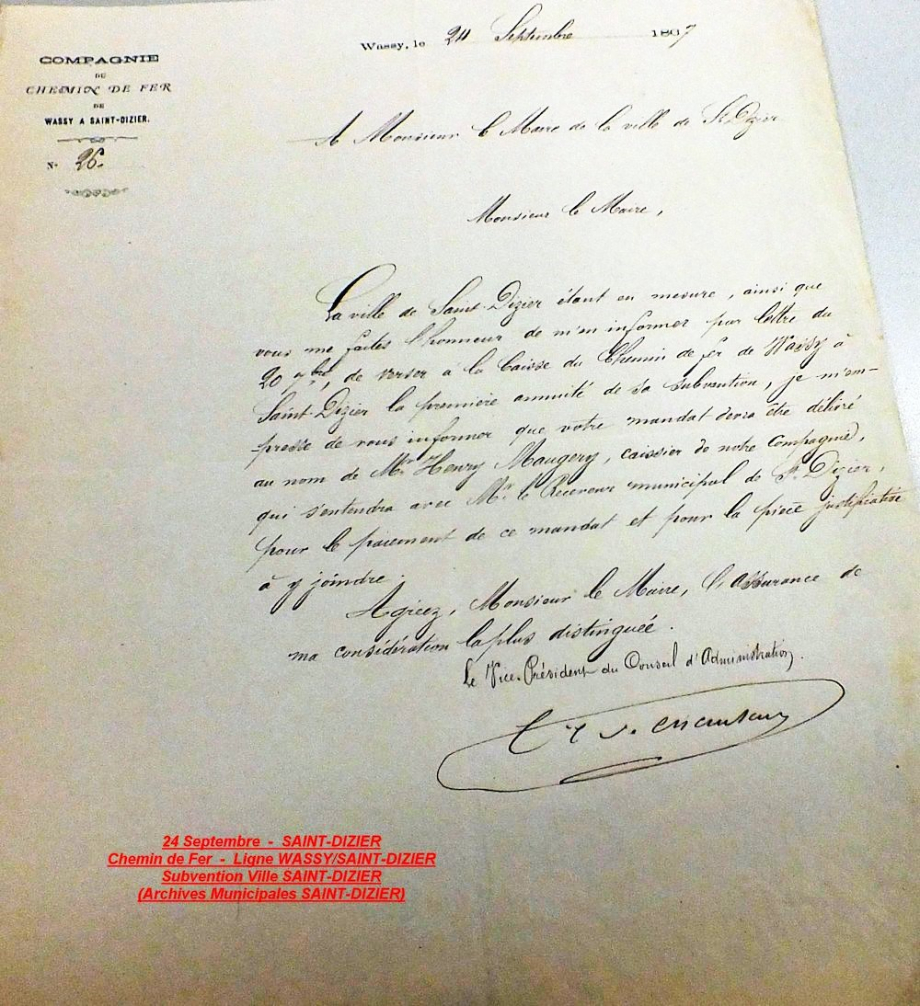 COMPAGNIE
DU
CHEMIN DE FER
DE
WASSY A SAINT-DIZIER.
N° 26.
Wassy, le 24 Septembre 1867
A Monsieur le Maire de la ville de St Dizier
Monsieur le Maire,
La ville de Saint-Dizier étant en mesure, ainsi que
vous me faites l'honneur de m'en informer par lettre du
20 7bre, de verser à la Caisse du Chemin de fer de Wassy à
Saint-Dizier la première annuité de sa subvention, je m'em-
presse de vous informer que votre mandat devra être délivré
au nom de Mr Henry Maugery, caissier de notre Compagnie,
qui s'entendra avec Mr le Receveur municipal de St Dizier,
pour le paiement de ce mandat et pour la pièce justificative
à y joindre.
Agréez, Monsieur le Maire, l'assurance de
ma considération la plus distinguée.
Le Vice-Président du Conseil d'Administration.
24 Septembre - SAINT-DIZIER
Chemin de Fer - Ligne WASSY/SAINT-DIZIER
Subvention Ville SAINT-DIZIER
(Archives Municipales SAINT-DIZIER)